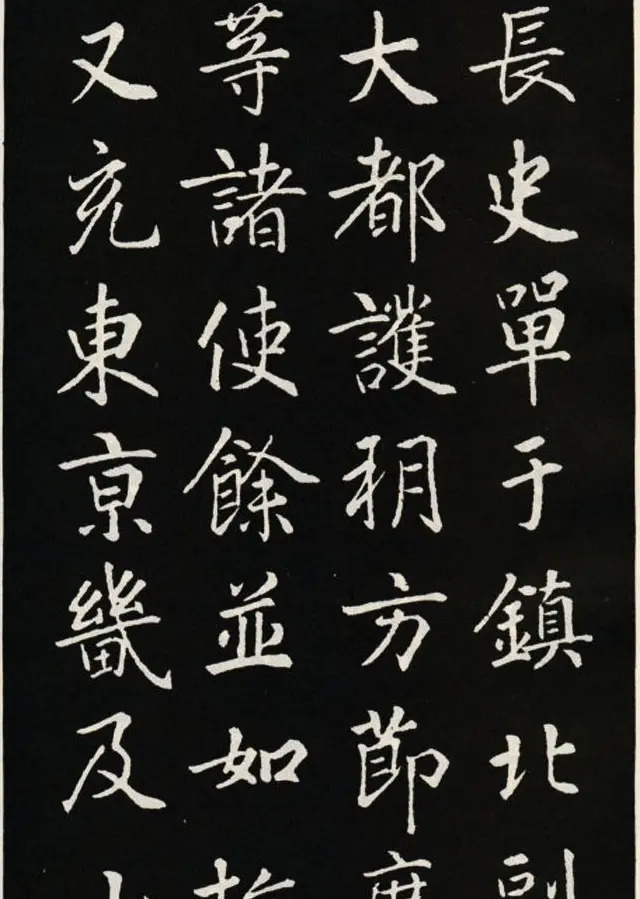 長史單于鎮北副
大都護朔方節度
等諸使餘並如
又充東亰畿及